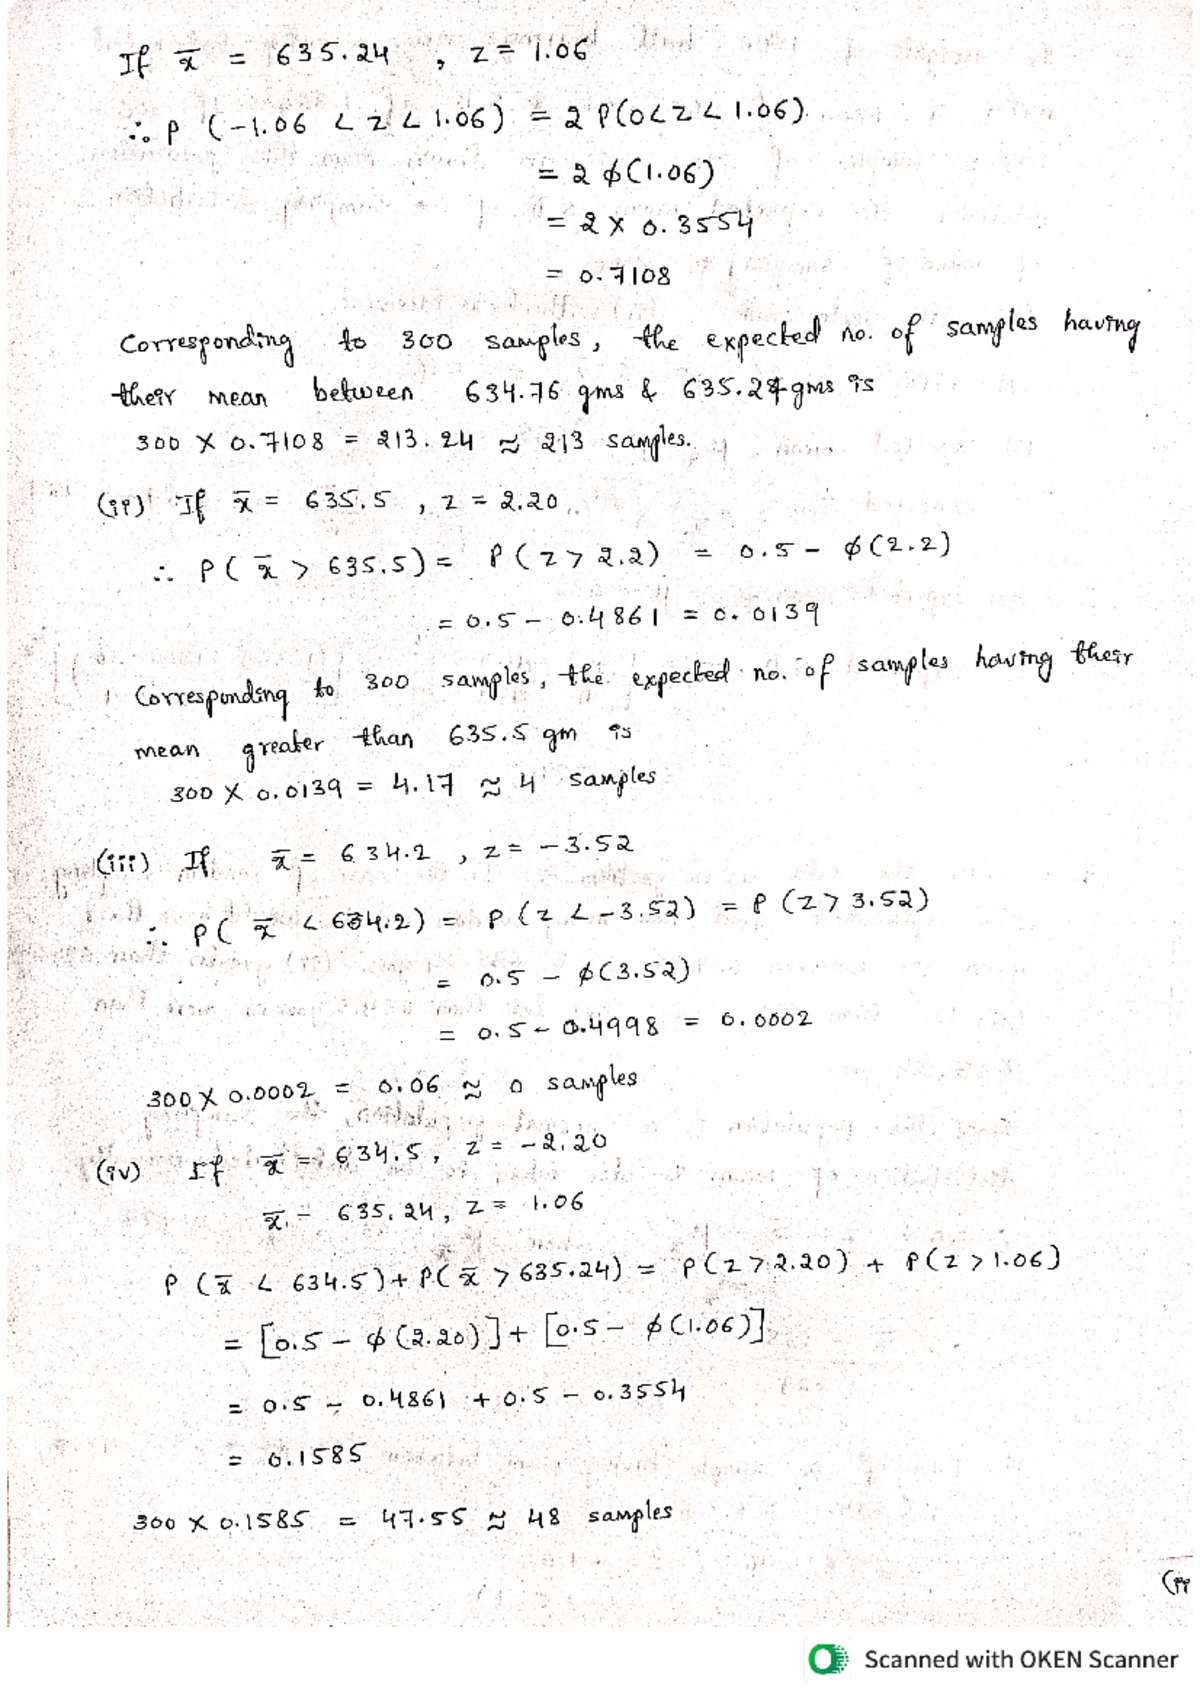 If x̄ = 635.24 , z = 1.06
∴ P (-1.06 < z < 1.06) = 2 P(0<z< 1.06)
= 2 ϕ(1.06)
= 2 × 0.3554
= 0.7108
Corresponding to 300 samples, the expected no. of samples having
their mean between 634.76 gms & 635.24 gms is
300 × 0.7108 = 213.24 ≈ 213 samples.
(ii) If x̄ = 635.5 , z = 2.20
∴ P( x̄ > 635.5) = P( z > 2.2) = 0.5 - ϕ(2.2)
= 0.5 - 0.4861 = 0.0139
Corresponding to 300 samples, the expected no. of samples having their
mean greater than 635.5 gm is
300 × 0.0139 = 4.17 ≈ 4 samples
(iii) If x̄ = 634.2 , z = -3.52
∴ P( x̄ < 634.2) = P (z < -3.52) = P (z > 3.52)
= 0.5 - ϕ(3.52)
= 0.5 - 0.4998 = 0.0002
300 × 0.0002 = 0.06 ≈ 0 samples
(iv) If x̄ = 634.5, z = -2.20
x̄ = 635.24, z = 1.06
P (x̄ < 634.5) + P( x̄ > 635.24) = P(z > 2.20) + P(z > 1.06)
= [0.5 - ϕ (2.20)] + [0.5 - ϕ(1.06)]
= 0.5 - 0.4861 + 0.5 - 0.3554
= 0.1585
300 × 0.1585 = 47.55 ≈ 48 samples
(ii
Scanned with OKEN Scanner